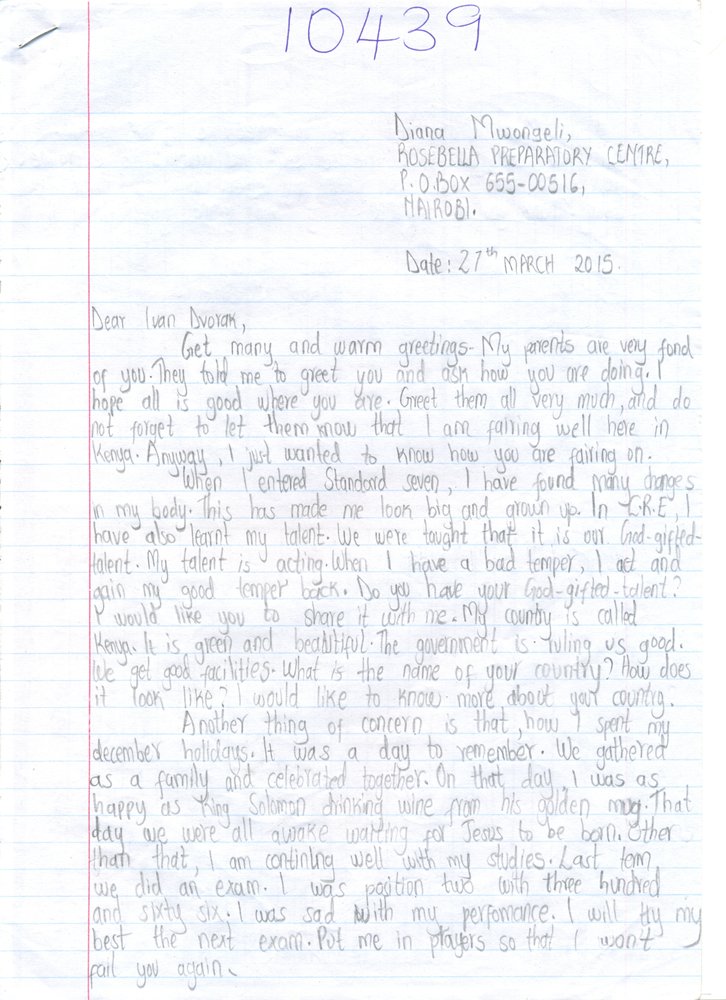 10439
Diana Mwongeli,
ROSEBELLA PREPARATORY CENTRE,
P.O.BOX 655-00516,
NAIROBI.
Date: 27th MARCH 2015.
Dear Ivan Dvorak,
Get many and warm greetings- My parents are very fond
of you. They told me to greet you and ask how you are doing. I
hope all is good where you are. Greet them all very much, and do
not forget to let them know that I am fairing well here in
Kenya. Anyway, I just wanted to know how you are fairing on.
When I entered Standard seven, I have found many changes
in my body. This has made me look big and grown up. In C.R.E, I
have also learnt my talent. We were taught that it is our God-gifted-
talent. My talent is acting. When I have a bad temper, I act and
gain my good temper back. Do you have your God-gifted-talent?
I would like you to share it with me. My country is called
Kenya. It is green and beautiful. The government is ruling us good.
We get good facilities. What is the name of your country? How does
it look like? I would like to know more about your country.
Another thing of concern is that, how I spent my
december holidays. It was a day to remember. We gathered
as a family and celebrated together. On that day, I was as
happy as King Solomon drinking wine from his golden mug. That
day we were all awake waiting for Jesus to be born. Other
than that, I am contining well with my studies. Last term,
we did an exam. I was position two with three hundred
and sixty six. I was sad with my perfomance. I will try my
best the next exam. Put me in players so that I won't
fail you again.